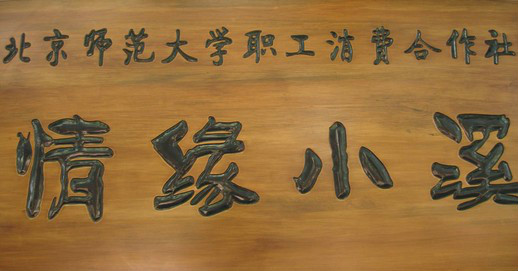 北京师范大学职工消费合作社
情缘小溪